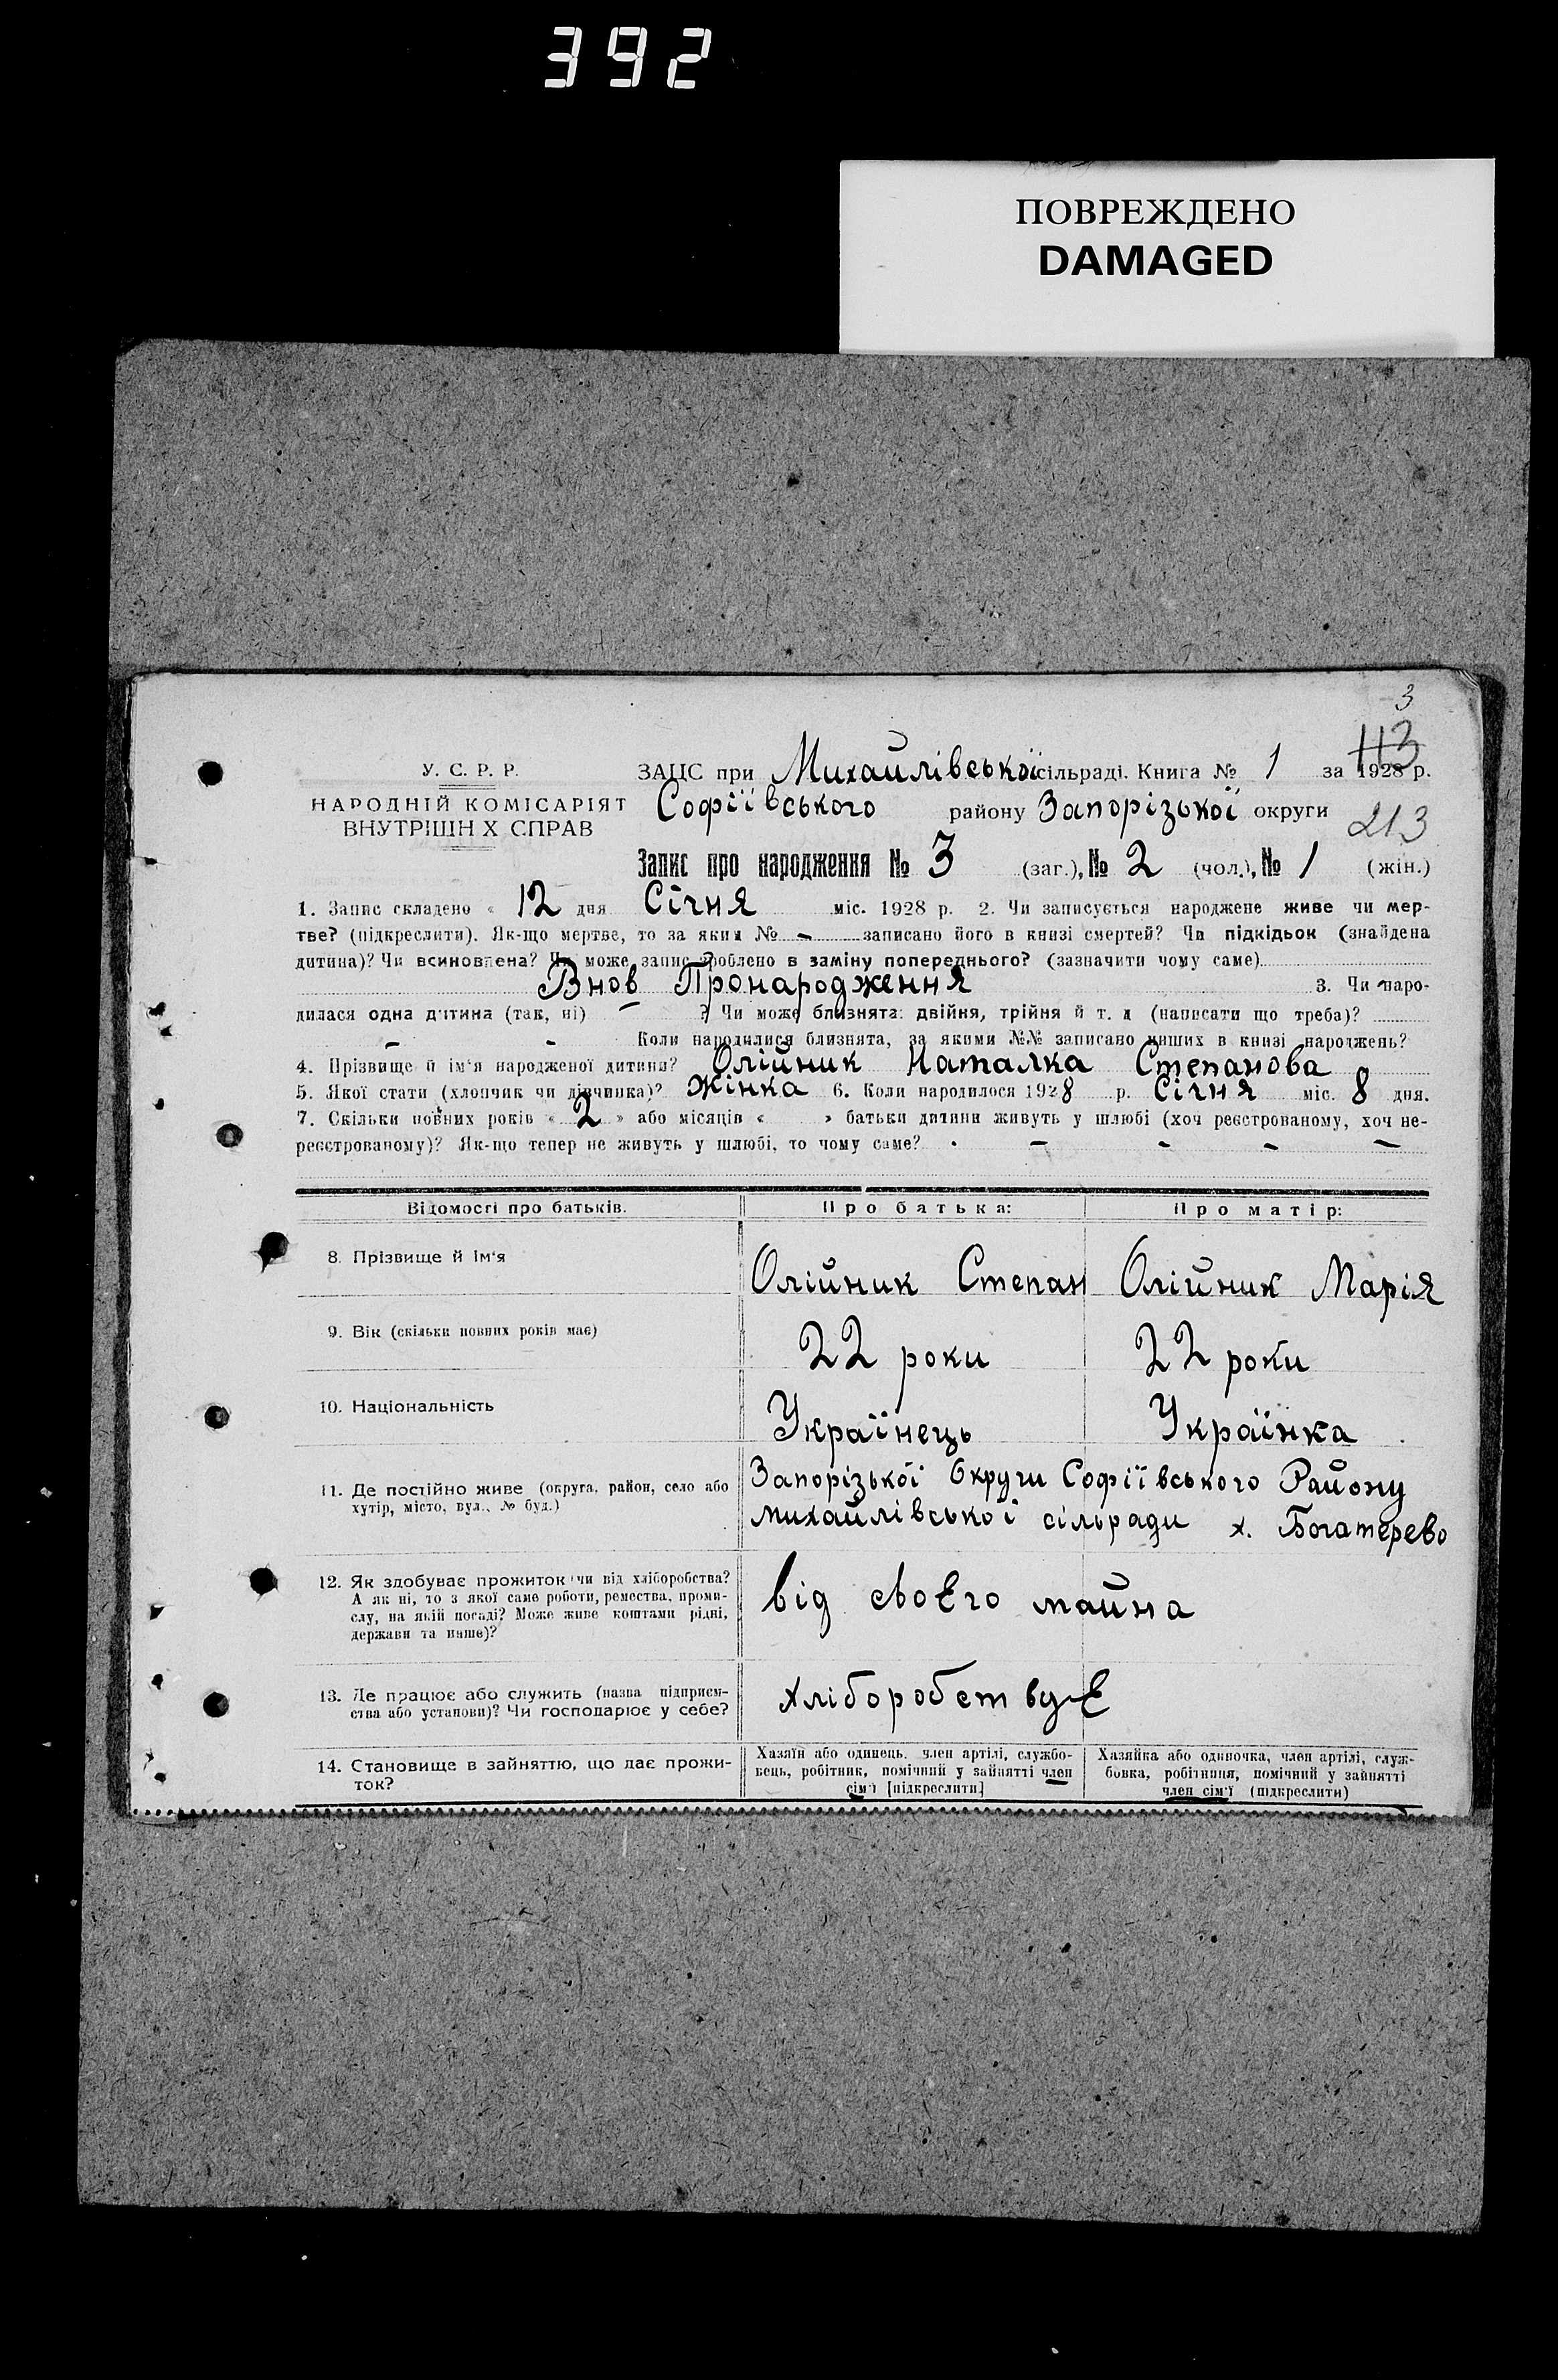 392
ПОВРЕЖДЕНО
DAMAGED
3
У. С. Р. Р.
НАРОДНІЙ КОМІСАРІЯТ
ВНУТРІШН Х СПРАВ
113
ЗАЦС при Михайлівської сільраді. Книга № 1 за 1928 р.
Софіївського району Запорізької округи
213
Запис про народження № 3 (заг.), № 2 (чол.), № 1 (жін.)
1. Запис складено « 12 дня Січня міс. 1928 р. 2. Чи записується народжене живе чи мер-
тве? (підкреслити). Як-що мертве, то за яким № - записано його в книзі смертей? Чи підкідьок (знайдена
дитина)? Чи всиновлена? Чи може запис зроблено в заміну попереднього? (зазначити чому саме)
Внов Пронародження 3. Чи наро-
дилася одна дитина (так, ні) – ? Чи може близнята: двійня, трійня й т. д (написати що треба)?
– - Коли народилися близнята, за якими №№ записано инших в книзі народжень?
4. Прізвище й ім'я народженої дитини? Олійник Наталка Степанова
5. Якої стати (хлопчик чи дівчинка)? Жінка 6. Коли народилося 1928 р. Січня міс. 8 дня.
7. Скільки повних років « 2 » або місяців « » батьки дитини живуть у шлюбі (хоч реєстрованому, хоч не-
реєстрованому)? Як-що тепер не живуть у шлюбі, то чому саме? - – - – –
Відомості про батьків. Про батька: Про матір:
8. Прізвище й ім'я Олійник Степан Олійник Марія
9. Вік (скільки повних років має) 22 роки 22 роки
10. Національність Українець Українка
11. Де постійно живе (округа, район, село або
хутір, місто, вул., № буд.)
Запорізької Округи Софіївського Району
Михайлівської сільради х. Богатерево
12. Як здобуває прожиток (чи від хліборобства?
А як ні, то з якої саме роботи, ремества, проми-
слу, на якій посаді? Може живе коштами рідні,
держави та инше)?
від своЕго майна
13. Де працює або служить (назва підприєм-
ства або установи)? Чи господарює у себе?
хліборобствуЕ
14. Становище в зайняттю, що дає прожи-
ток?
Хазяїн або одинець, член артілі, службо-
вець, робітник, помічний у зайнятті член
сім'ї [підкреслити]
Хазяйка або одиночка, член артілі, служ-
бовка, робітниця, помічний у зайнятті
член сім'ї (підкреслити)